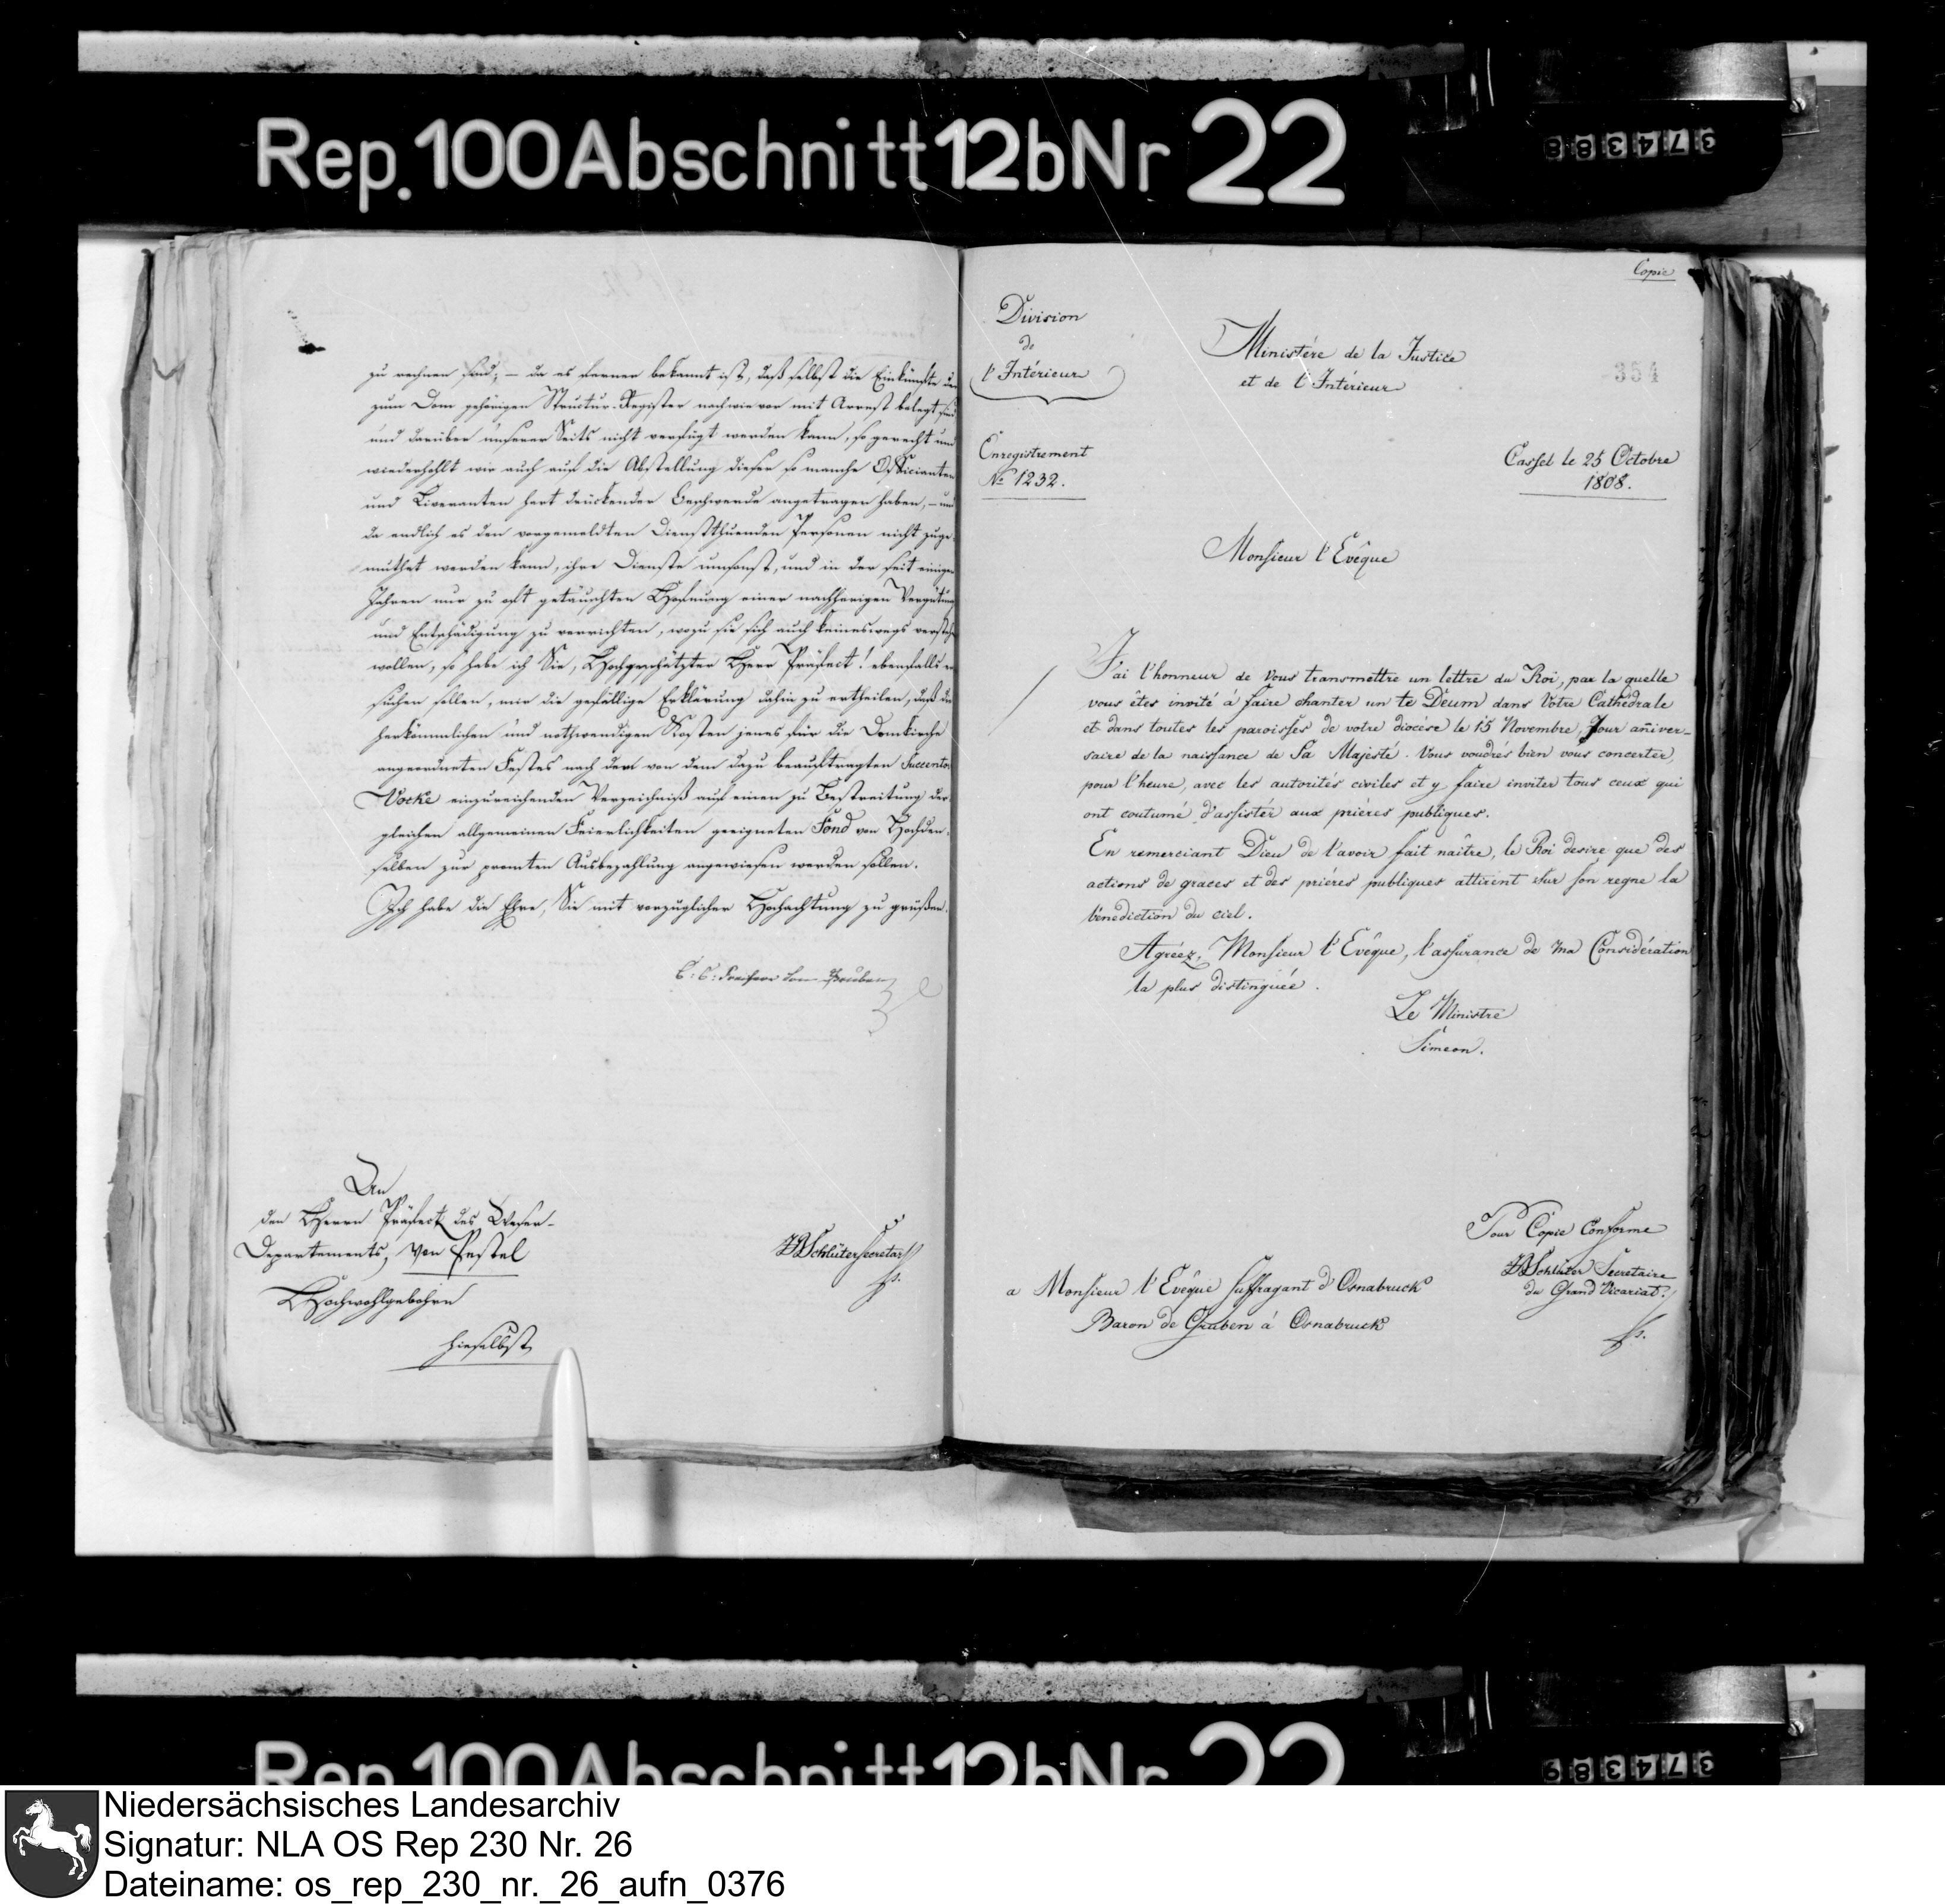 Rep. 100 Abschnitt 12b Nr 22
374388
zu rechnen sind; – da es ferner bekannt ist, daß selbst die Einkünfte der
zum Dom gehörigen Structur-Register nach wie vor mit Arrest belegt sind
und darüber unserer Seits nicht verfügt werden kann, so gerecht und
wiederhohlt wir auch auf die Abstellung dieser so manche Officianten
und Liveranten hart drückender Beschwerde angetragen haben, – und
da endlich es den vorgemeldten Dienstthuenden Personen nicht zuge-
muthet werden kann, ihre Dienste umsonst, und in der seit einigen
Jahren nur zu oft getäuschten Hofnung einer nachherigen Vergütung
und Entschädigung zu verrichten, wozu sie sich auch keineswegs verstehen
wollen, so habe ich Sie, Hochgeschätzter Herr Präfect! ebenfalls er
suchen sollen, mir die gefällige Erklärung dahin zu ertheilen, daß die
herkömmlichen und nothwendigen Kosten jenes für die Domkirche
angeordneten Festes nach dem von dem dazu beauftragten Succentor
Vocke einzureichenden Verzeichniß auf einen zu Bestreitung der-
gleichen allgemeinen Feierlichkeiten geeigneten Fond von Hochden-
selben zur promten Ausbezahlung angewiesen werden sollen.
Ich habe die Ehre, Sie mit vorzüglicher Hochachtung zu grüßen.
C: C: Freiherr von Gruben
An
den Herrn Präfect des Weser-
Departements, von Pestel
Hochwohlgebohrn
hieselbst
Schlüter Secretar
Copie
Division
de
l'Intérieur
Ministére de la Justice
et de l'Intérieur
354
Enregistrement
No 1232.
Cassel le 25 Octobre
1808.
Monsieur l'Evêque
J'ai l'honneur de Vous transmettre un lettre du Roi, par la quelle
vous êtes invité á faire chanter un te Deum dans Votre Cathédrale
et dans toutes les paroisses de votre diocése le 15 Novembre, Jour añiver-
saire de la naissance de Sa Majesté. Vous voudrés bien vous concerter,
pour l'heure, avec les autorités civiles et y faire inviter tous ceux qui
ont coutumé d'assistér aux priéres publiques.
En remerciant Dieu de l'avoir fait naître, le Roi desire que des
actions de graces et des priéres publiques attirent sur son regne la
bénediction du ciel.
Agréez, Monsieur l'Evêque, l'assurance de ma Considération
la plus distinguée.
Le Ministre
Simeon.
Pour Copie Conforme
Schlüter Secretaire
du Grand Vicariat.
a Monsieur l'Evêque suffragant d'Osnabruck
Baron de Gruben á Osnabruck
Rep. 100 Abschnitt 12b Nr 22
374389
Niedersächsisches Landesarchiv
Signatur: NLA OS Rep 230 Nr. 26
Dateiname: os_rep_230_nr._26_aufn_0376